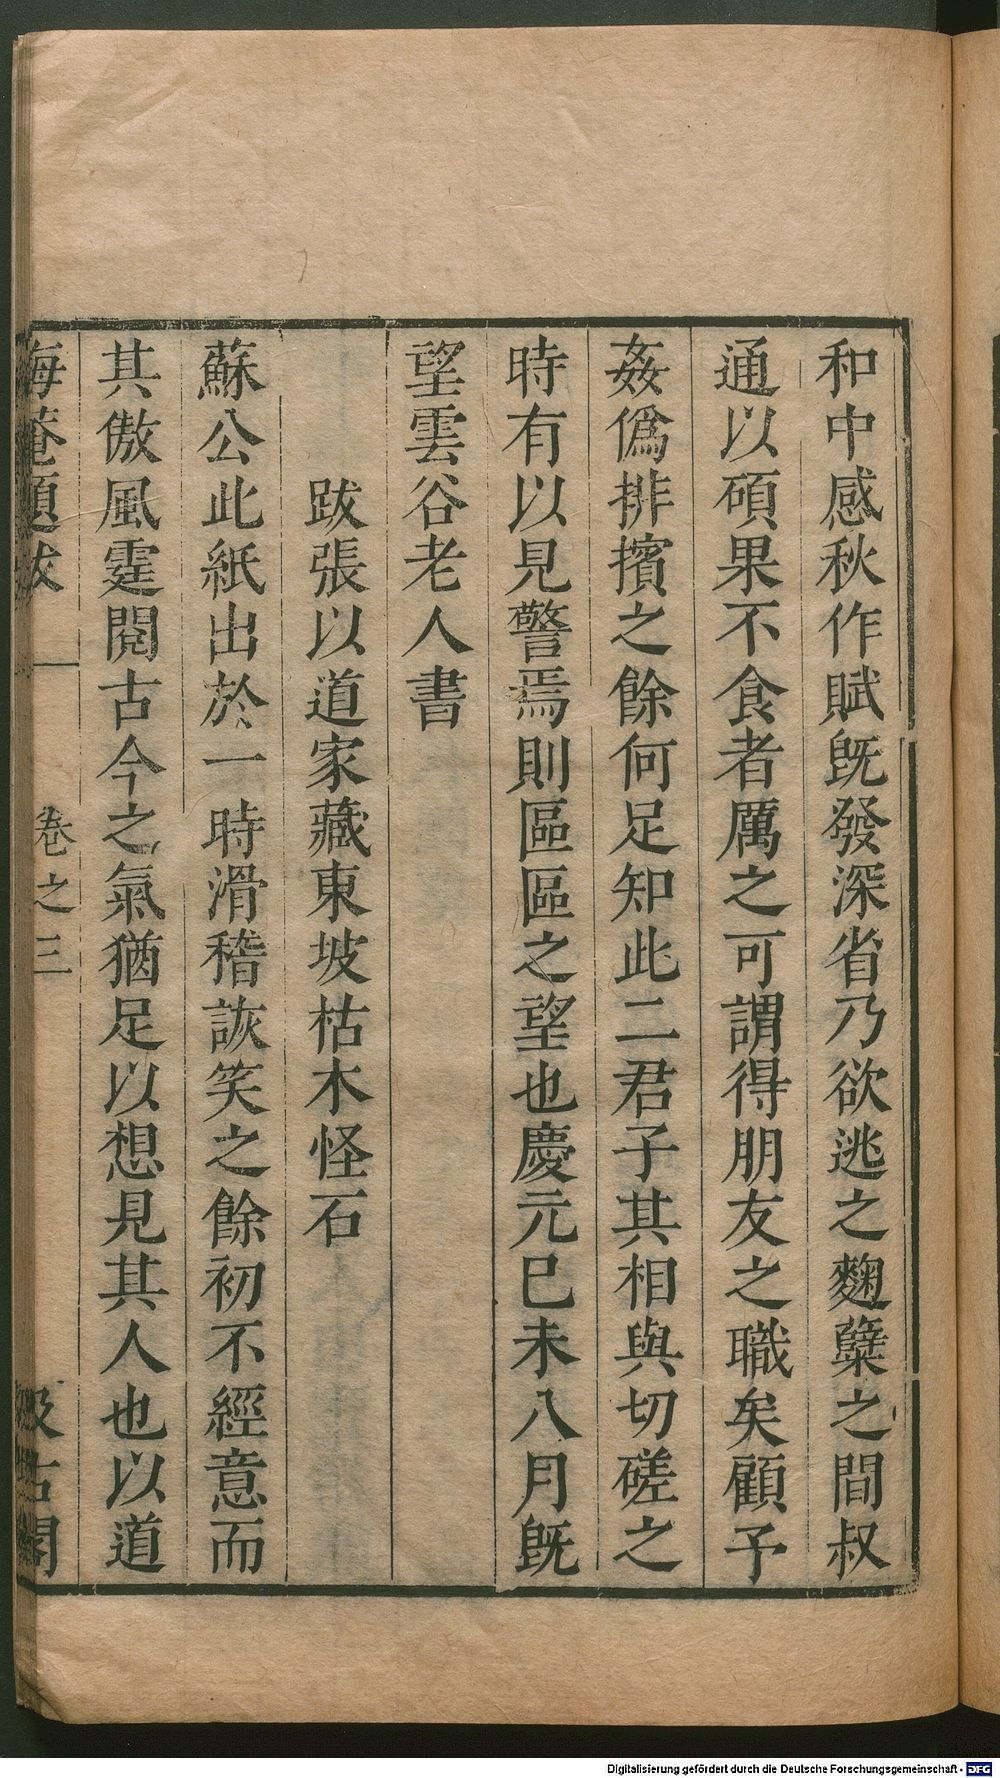 和中感秋作賦既發深省乃欲逃之麴糵之間叔
通以碩果不食者厲之可謂得朋友之職矣顧予
姦偽排擯之餘何足知此二君子其相與切磋之
時有以見警焉則區區之望也慶元已未八月既
望雲谷老人書
跋張以道家藏東坡枯木怪石
蘇公此紙出於一時滑稽詼笑之餘初不經意而
其傲風霆閱古今之氣猶足以想見其人也以道
海菴題跋 卷之三 汲古閣
Digitalisierung gefördert durch die Deutsche Forschungsgemeinschaft - DFG